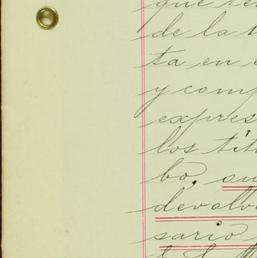 que te
de la
ta en
y comp
expres
los tít
bo, su
devolv
sario